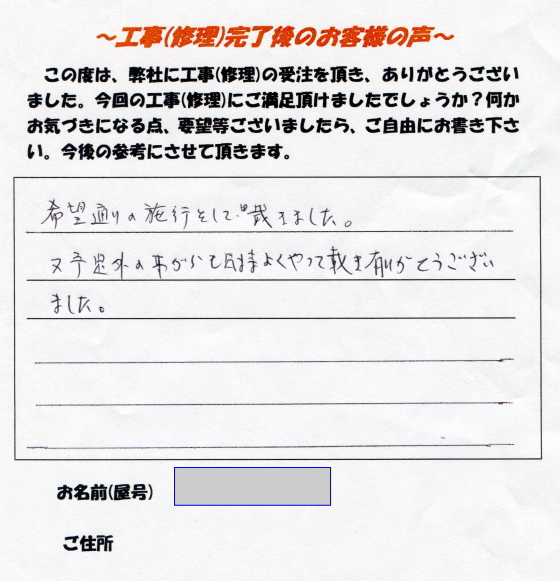 ～工事(修理)完了後のお客様の声～
この度は、弊社に工事(修理)の受注を頂き、ありがとうござい
ました。今回の工事(修理)にご満足頂けましたでしょうか？何か
お気づきになる点、要望等ございましたら、ご自由にお書き下さ
い。今後の参考にさせて頂きます。
希望通りの施行をして戴きました。
又予定外の事がらも気持よくやって戴き有りがとうござい
ました。
お名前(屋号)
ご住所